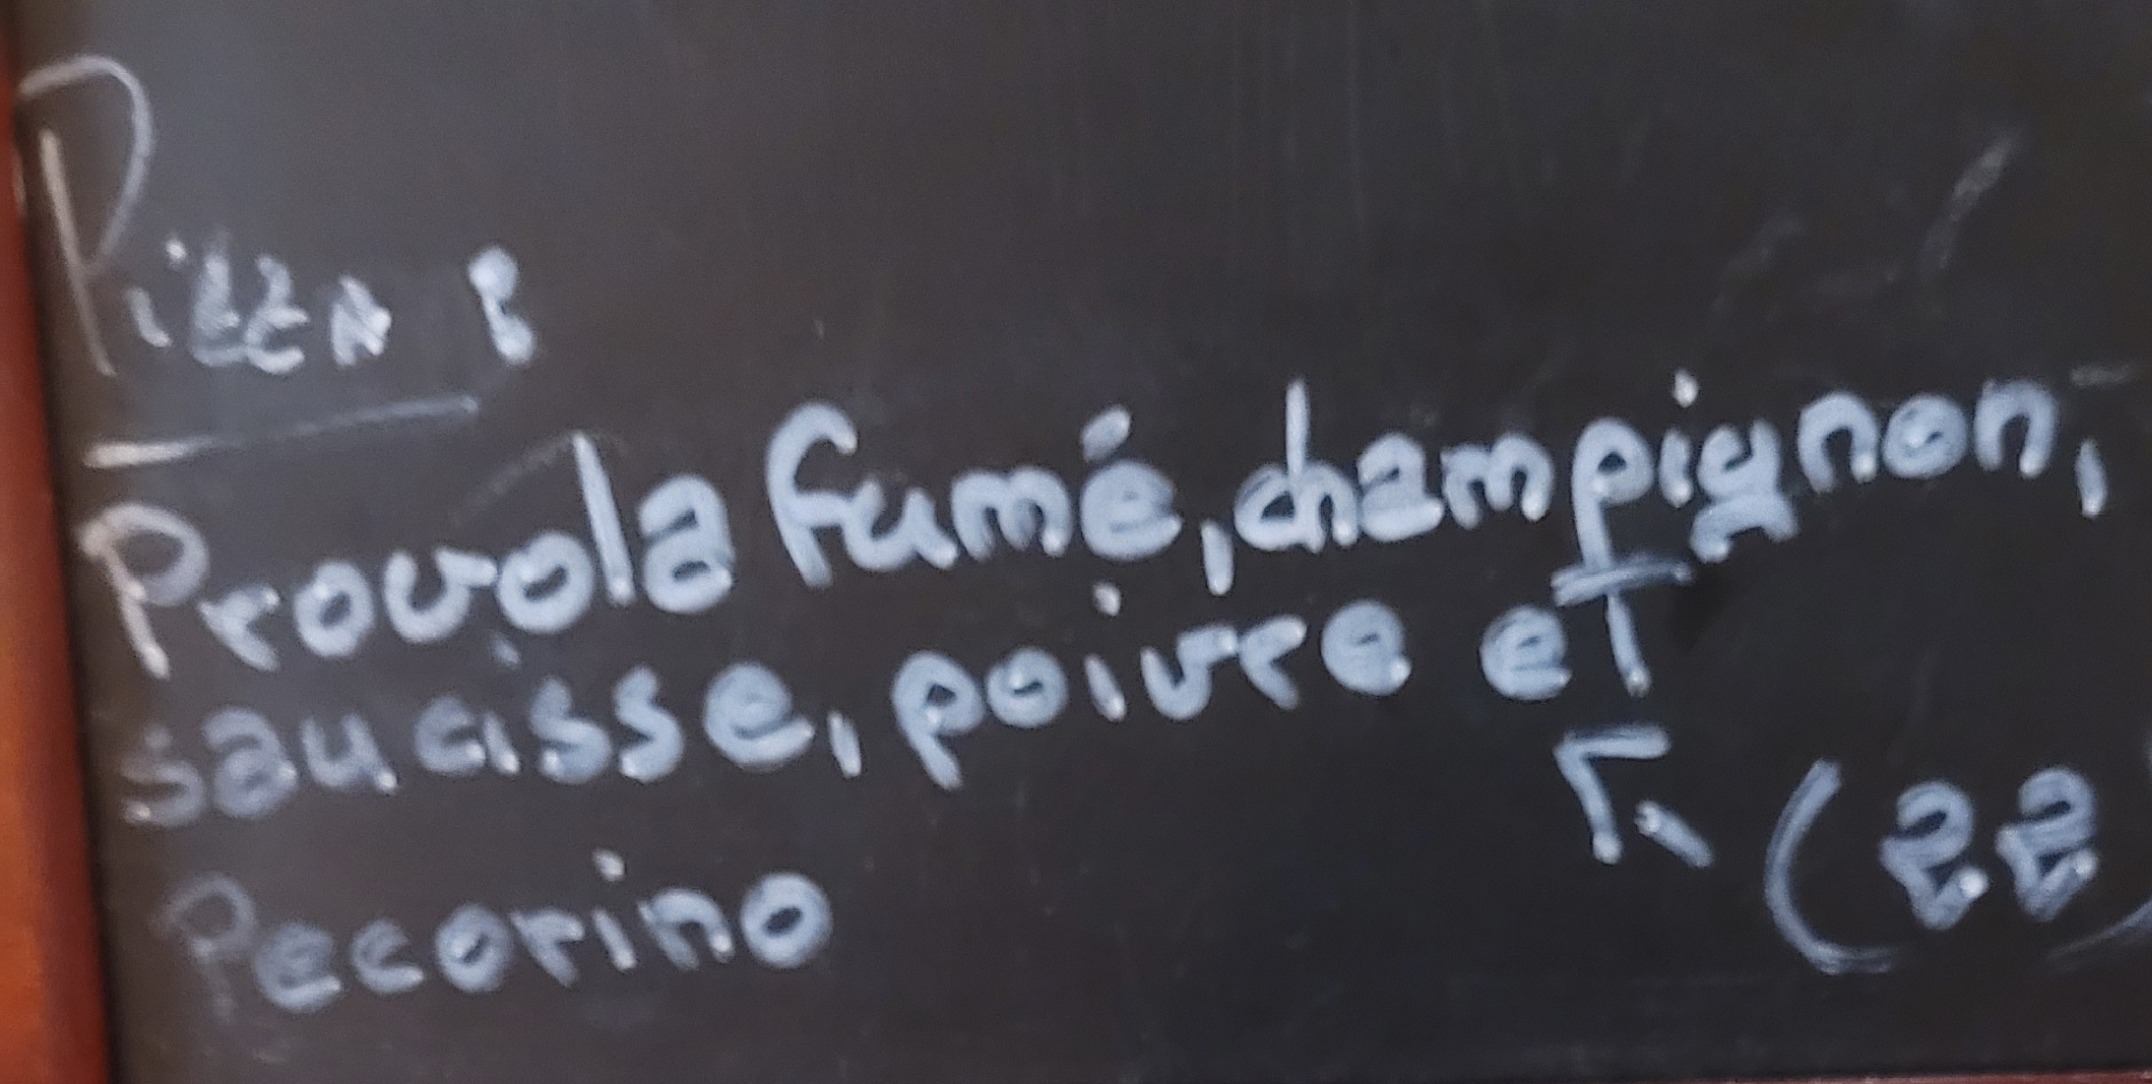 Pizza :
Provola fumé, champignon,
saucisse, poivre et
Pecorino
Fr. (22)